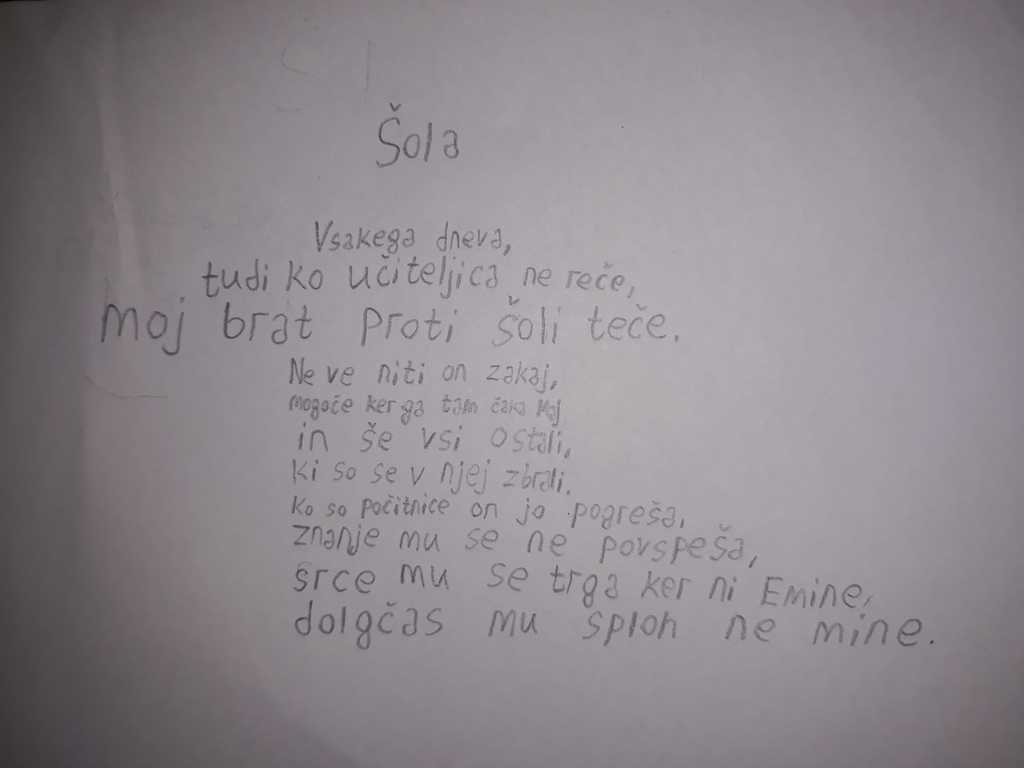 Šola
Vsakega dneva,
tudi ko učiteljica ne reče,
moj brat proti šoli teče.
Ne ve niti on zakaj,
mogoče ker ga tam čaka Maj
in še vsi ostali,
ki so se v njej zbrali.
Ko so počitnice on jo pogreša,
znanje mu se ne povspeša,
srce mu se trga ker ni Emine,
dolgčas mu sploh ne mine.